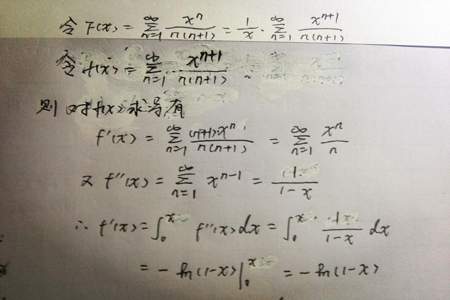 令 F(x) = ∑_{n=1}^{∞} x^n / n(n+1) = 1/x · ∑_{n=1}^{∞} x^{n+1} / n(n+1)
令 f(x) = ∑_{n=1}^{∞} x^{n+1} / n(n+1)
则 对f(x) 求导有
f'(x) = ∑_{n=1}^{∞} (n+1)x^n / n(n+1) = ∑_{n=1}^{∞} x^n / n
又 f''(x) = ∑_{n=1}^{∞} x^{n-1} = 1 / 1-x
∴ f'(x) = ∫_0^x f''(x) dx = ∫_0^x 1 / 1-x dx
= - ln(1-x) |_0^x = - ln(1-x)